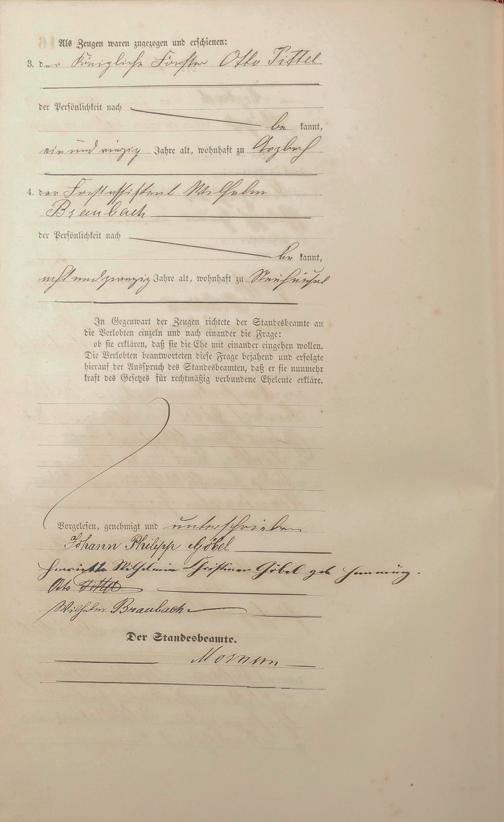 Als Zeugen waren zugezogen und erschienen:
3. der Königliche Förster Otto Tittel
der Persönlichkeit nach
be kannt,
ein und vierzig Jahre alt, wohnhaft zu
4. der Forstassistent Wilhelm
Braubach
der Persönlichkeit nach
be kannt,
acht und zwanzig Jahre alt, wohnhaft zu
In Gegenwart der Zeugen richtete der Standesbeamte an
die Verlobten einzeln und nach einander die Frage:
ob sie erklären, daß sie die Ehe mit einander eingehen wollen.
Die Verlobten beantworteten diese Frage bejahend und erfolgte
hierauf der Ausspruch des Standesbeamten, daß er sie nunmehr
kraft des Gesetzes für rechtmäßig verbundene Eheleute erkläre.
Vorgelesen, genehmigt und unterschrieben
Johann Philipp Göbel
Henriette Wilhelmine Christiane Göbel geb
Otto Tittel
Wilhelm Braubach
Der Standesbeamte.